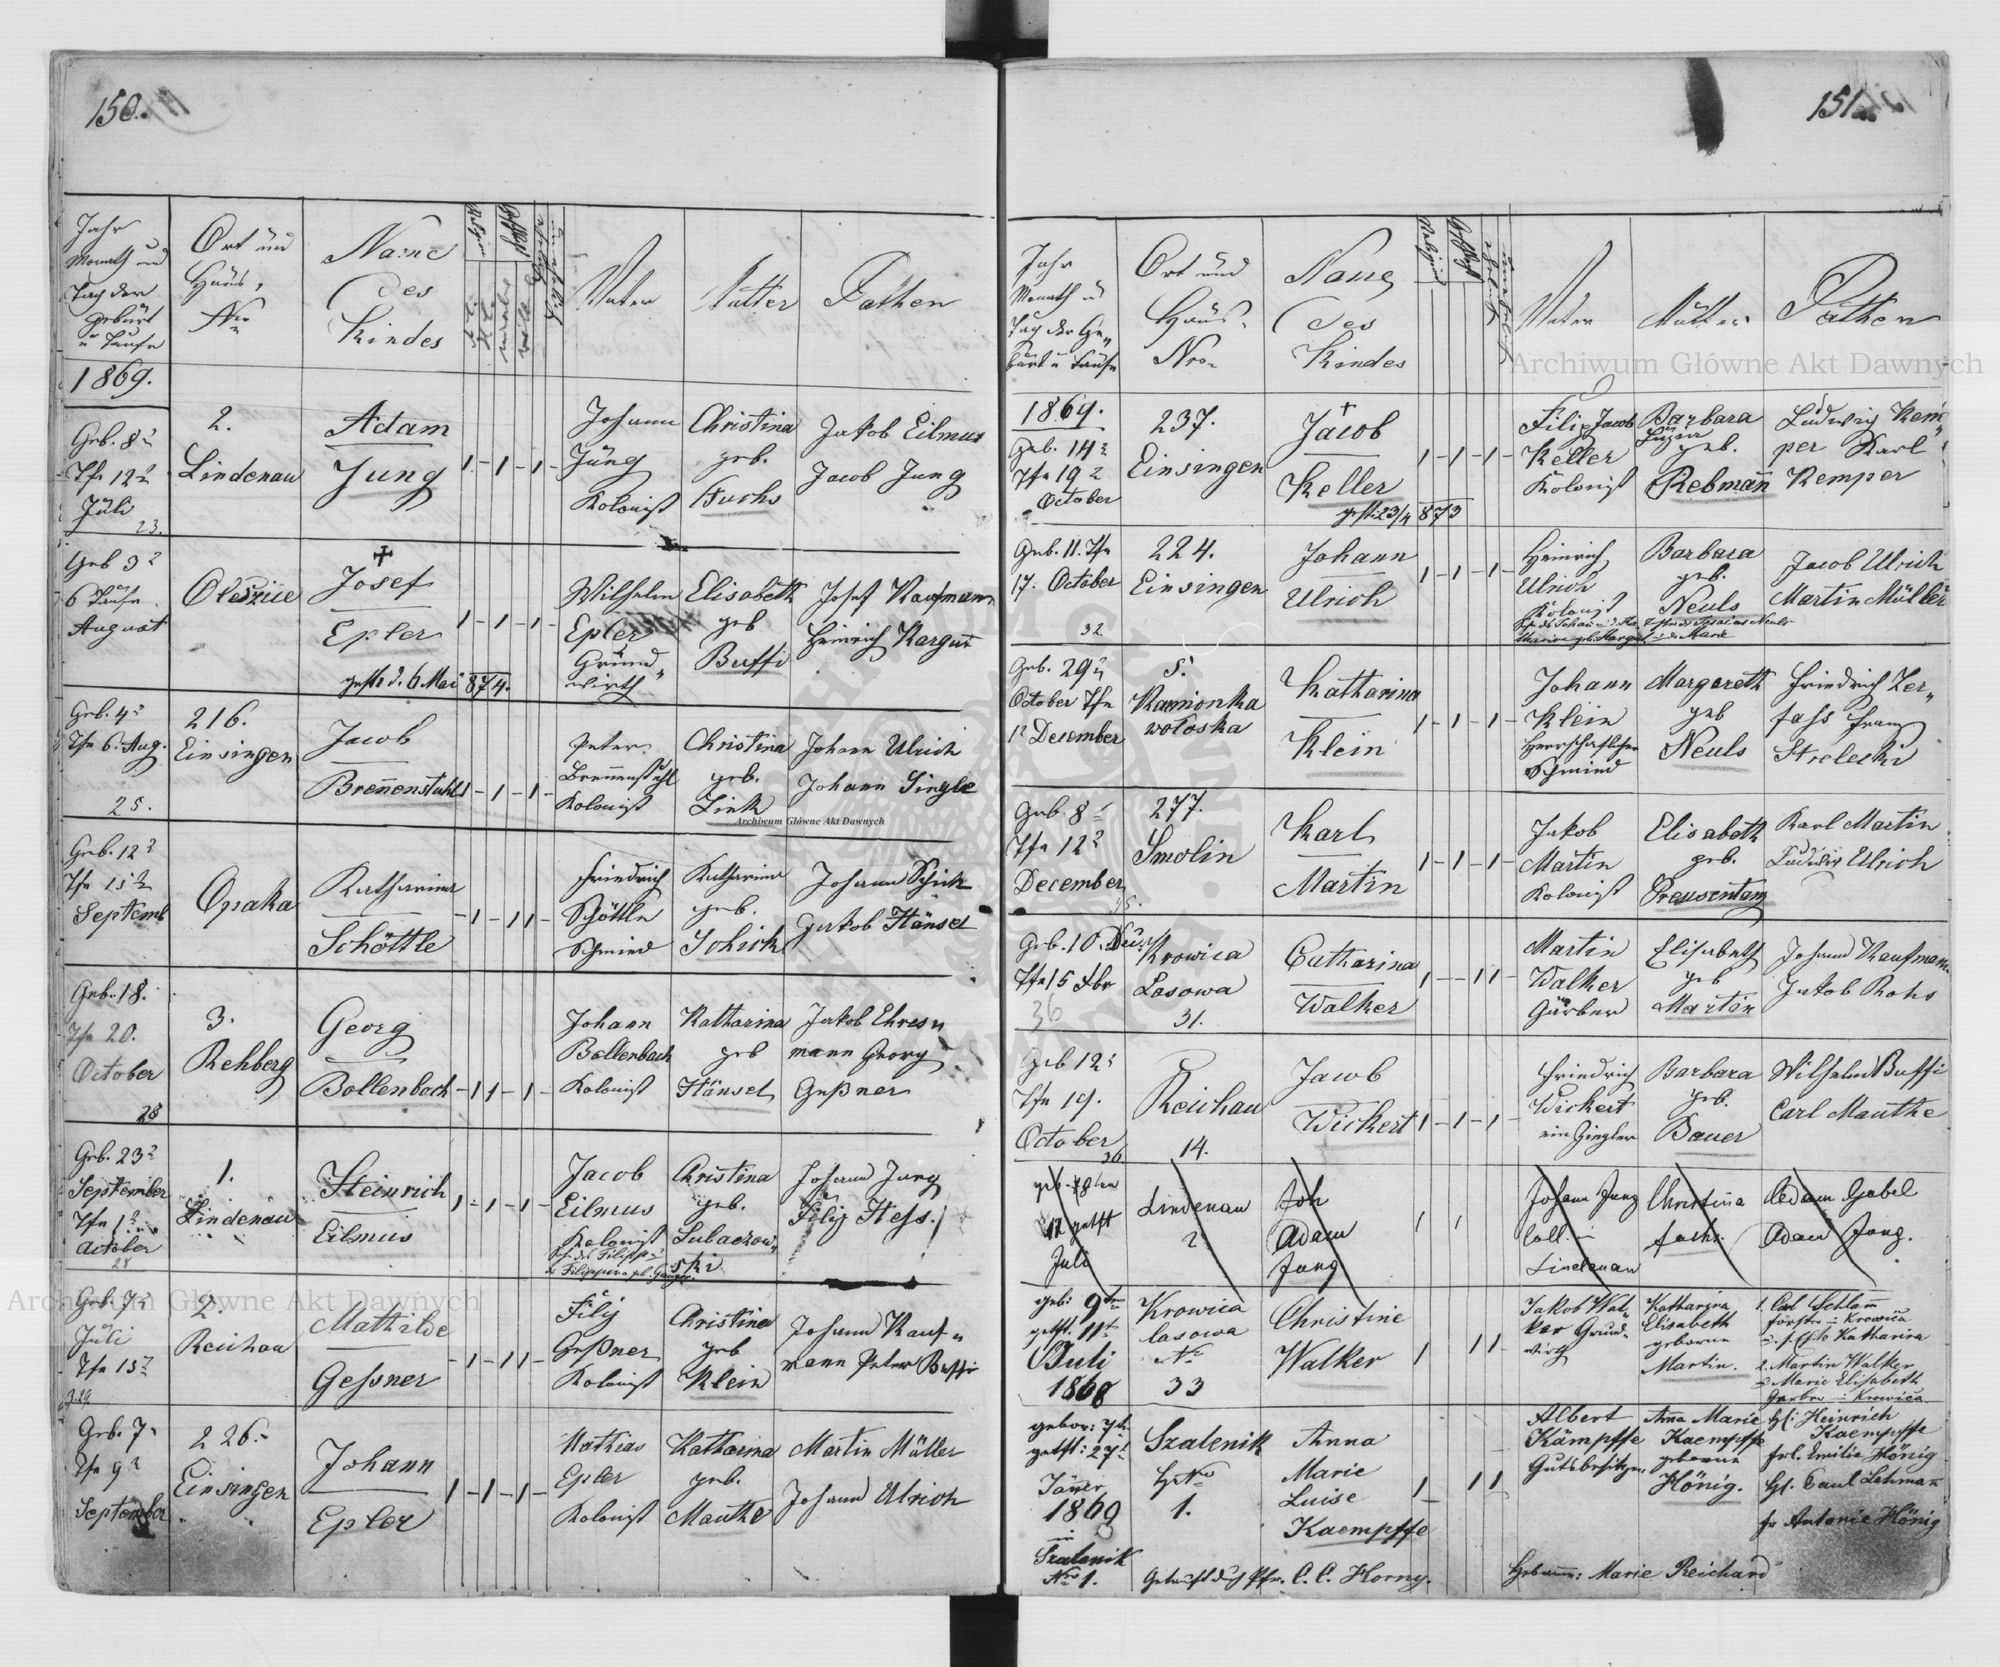 150.
Jahr
Monath und
Tag der
Geburt
u Taufe
Ort und
Haus
Nro
Name
des
Kindes
Vater
Mutter
Pathen
1869.
Geb. 8
Tfe 12
Juli
23.
2.
Lindenau
Adam
Jung
Johann
Jung
Kolonist
Christina
geb.
Fuchs
Jakob Eilmus
Jacob Jung
Geb 3
6 Taufe
August
Oleszice
Josef
Epler
gest. d. 6 Mai 874.
Wilhelm
Epler
Grund
wirth
Elisabeth
geb
Buffi
Josef Kaufmann
Heinrich Kargus
Geb. 4
Tfe 6. Aug.
25.
216.
Einsingen
Jacob
Brennenstuhl
Peter
Brennenstuhl
Kolonist
Christina
geb.
Link
Johann Ulrich
Johann Single
Archiwum Główne Akt Dawnych
Geb. 12
Tfe 15
Septemb
Opaka
Katharina
Schöttle
Friedrich
Schöttle
Schmied
Katharina
geb.
Schick
Johann Schick
Jakob Hänsel
Geb. 18.
Tfe 20.
October
28
3.
Rehberg
Georg
Bollenbach
Johann
Bollenbach
Kolonist
Katharina
geb
Hänsel
Jakob Ehres
mann Georg
Geßner
Geb. 23
September
Tfe 1
October
28
1.
Lindenau
Heinrich
Eilmus
Jacob
Eilmus
Kolonist
Christina
geb.
Lubaczow
ski
Johann Jung
Filip Hess.
Geb. 7
Juli
Tfe 15
2.
Reichau
Mathilde
Gessner
Filip
Geßner
Kolonist
Christina
geb
Klein
Johann Kauf
mann Peter Buffi
Geb. 7
Tfe 9
September
226.
Einsingen
Johann
Epler
Mathias
Epler
Kolonist
Katharina
geb.
Mauthe
Martin Müller
Johann Ulrich
Archiwum Główne Akt Dawnych
151.
Jahr
Monath u
Tag der Ge
burt u Taufe
Ort und
Haus
Nro.
Name
des
Kindes
Vater
Mutter
Pathen
Archiwum Główne Akt Dawnych
1869.
Geb. 14
Tfe 19
October
237.
Einsingen
Jacob
Keller
gest. 23/4 873
Filip Jacob
Keller
Kolonist
Barbara
geb.
Rebmann
Ludwig Kem
per Karl
Kemper
Geb. 11. Tfe
17. October
32
224.
Einsingen
Johann
Ulrich
Heinrich
Ulrich
Kolonist
Barbara
geb.
Neuls
Jacob Ulrich
Martin Müller
Geb. 29
October Tfe
1 December
5.
Kamionka
wołoska
Katharina
Klein
Johann
Klein
Herrschaftlicher
Schmied
Margareth
geb
Neuls
Friedrich Zer
fass Franz
Strelecki
Geb 8
Tfe 12
December
277.
Smolin
Karl
Martin
Jakob
Martin
Kolonist
Elisabeth
geb.
Preusentanz
Karl Martin
Ludwig Ulrich
Geb. 10. Dec
Tfe 15
36
Krowica
Lasowa
31.
Catharina
Walker
Martin
Walker
Gärber
Elisabeth
geb
Martin
Johann Kaufmann
Jakob Rohs
Geb 12
Tfe 19.
October
36
Reichau
14.
Jacob
Wickert
Friedrich
Wickert
ein Ziegler
Barbara
geb.
Bauer
Wilhelm Buffi
Carl Mauthe
geb. 8ten
12 getft
Juli
Lindenau
2
Joh
Adam
Jung
Johann Jung
Coll. in
Lindenau
Christina
Fuchs
Adam Gabel
Adam Jung.
geb: 9ten
getft. 11t
Juli
1868
Krowica
lasowa
No
33
Christine
Walker
Jakob Wal
ker Grund
wirth
Katharina
Elisabeth
geborne
Martin.
1. Carl Schlamm
Förster in Krowica
Katharina
2. Martin Walker
Marie Elisabeth
Garber in Krowica
gebor: 7t
getft: 27t
Jäner
1869
in
Szalenik
Nro 1.
Szalenik
HNro
1.
Anna
Marie
Luise
Kaempffe
Albert
Kämpffe
Gutsbesitzer
Anna Marie
Kaempffe
geborne
Hönig.
H: Heinrich
Kaempffe
Frl. Emilie Hönig
H. Paul Lehmann
Fr Antonie Hönig
Getauft durch Pfr. C. C. Horny.
Hebamme: Marie Reichard